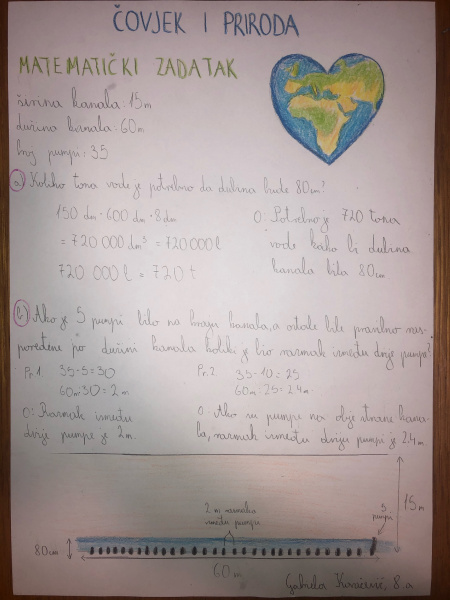 ČOVJEK I PRIRODA
MATEMATIČKI ZADATAK
širina kanala: 15m
dužina kanala: 60m
broj pumpi: 35
a) Koliko tona vode je potrebno da dubina bude 80cm?
150 dm · 600 dm · 8 dm
= 720 000 dm³ = 720 000 l
720 000 l = 720 t
O: Potrebno je 720 tona
vode kako bi dubina
kanala bila 80cm
b) Ako je 5 pumpi bilo na kraju kanala, a ostale bile pravilno ras-
poređene po dužini kanala koliki je bio razmak između dvije pumpe?
Pr. 1 35-5=30
60m:30=2m
O: Razmak između
dvije pumpe je 2m.
Pr. 2. 35-10=25
60m:25=2.4m
O: Ako su pumpe na obje strane kana-
la, razmak između dviju pumpi je 2.4m
2 m razmaka
između pumpi
5
pumpi
15m
80cm
60m
Gabriela 8.a